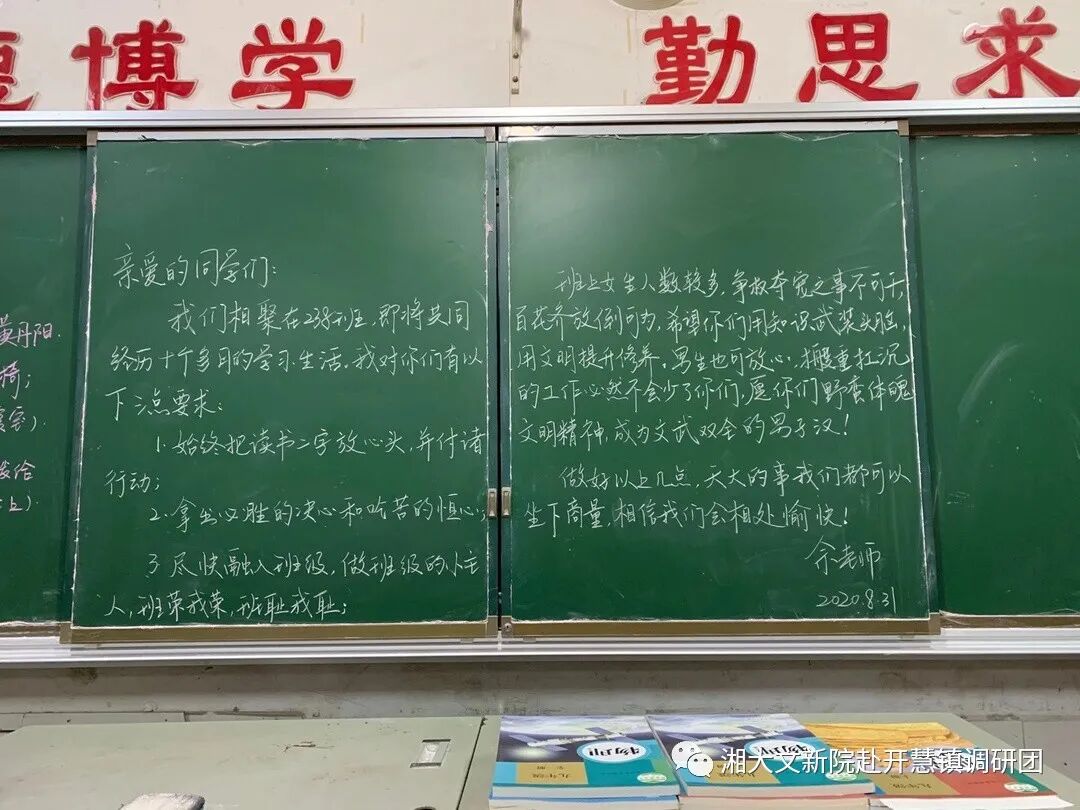 博学 勤思求
丹阳.
椅;
亲爱的同学们:
我们相聚在238班,即将共同
经历十个多月的学习生活。我对你们有以
下三点要求:
1.始终把读书二字放心头,并付诸
行动;
2.拿出必胜的决心和吃苦的恒心;
3.尽快融入班级,做班级的小主
人,班荣我荣,班耻我耻;
班上女生人数较多,争权夺宠之事不可干,
百花齐放倒可为,希望你们用知识武装头脑,
用文明提升修养。男生也可放心,搬重扛沉
的工作必然不会少了你们,愿你们野蛮体魄
文明精神,成为文武双全的男子汉!
做好以上几点,天大的事我们都可以
坐下商量,相信我们会相处愉快!
余老师
2020.8.31
物理
九年级
湘大文新院赴开慧镇调研团